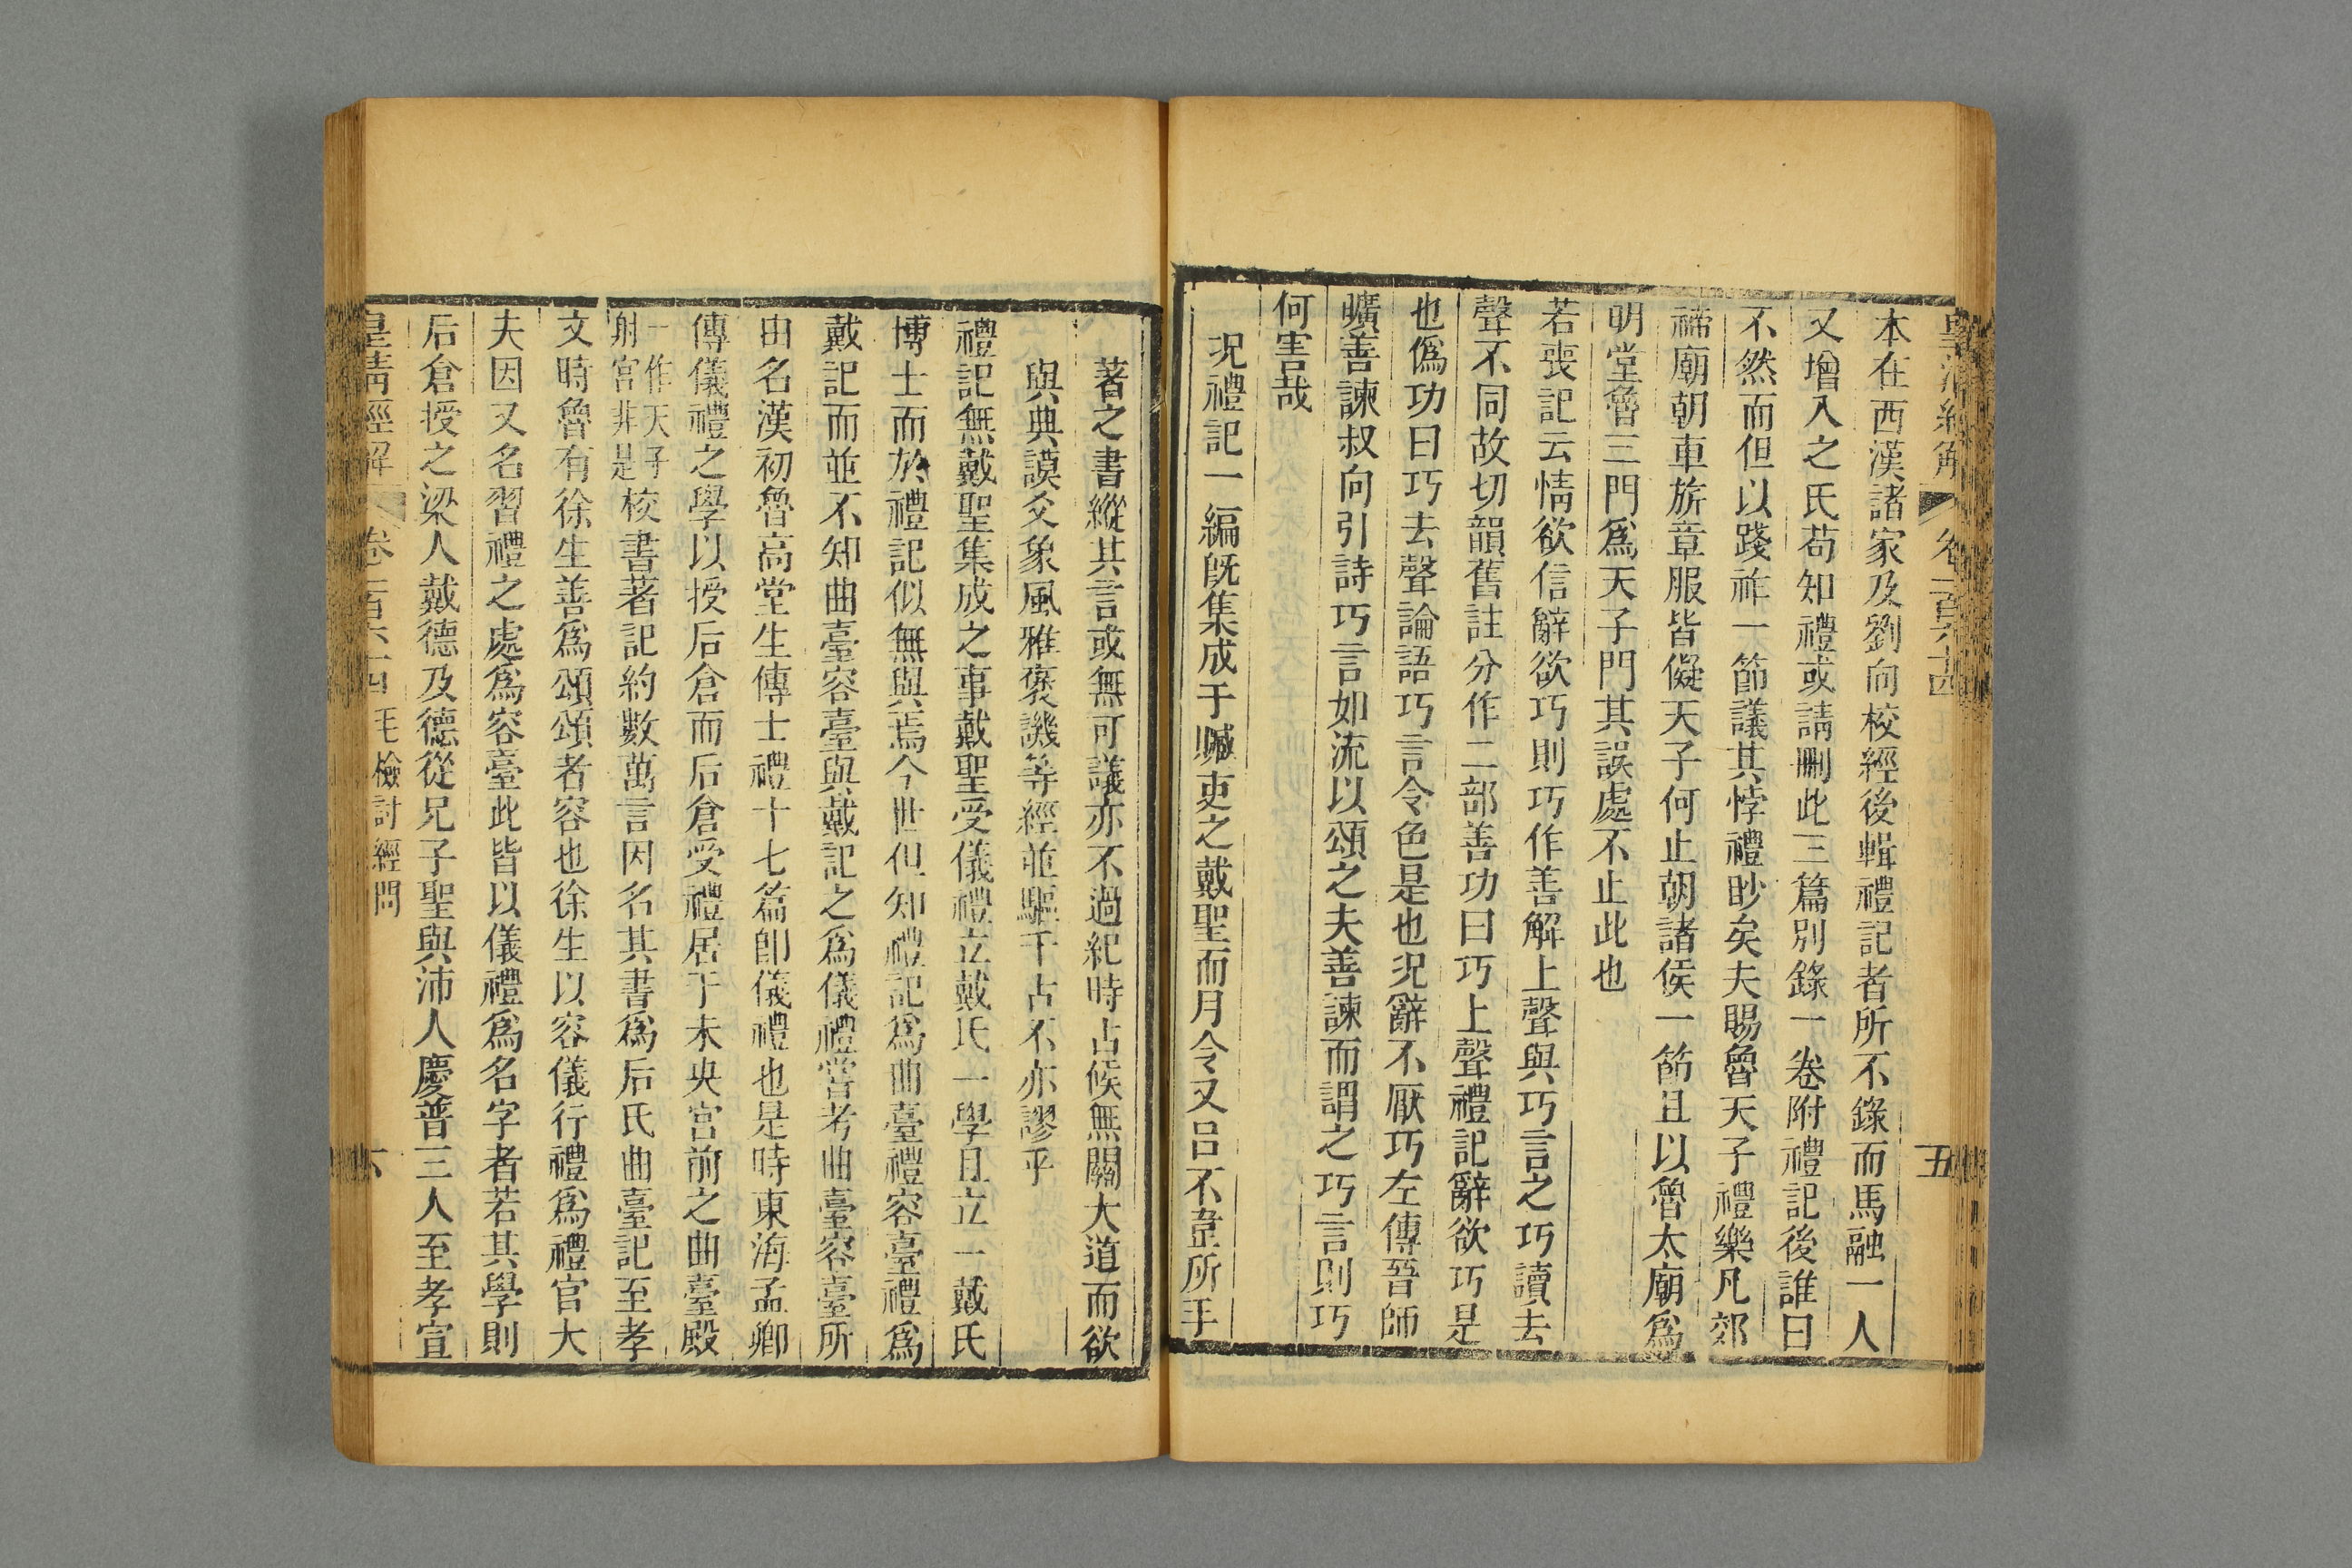 皇清經解 卷一百六十四 五
本在西漢諸家及劉向校經後輯禮記者所不錄而馬融一人
又增入之氏苟知禮或請刪此三篇別錄一卷附禮記後誰曰
不然而但以踐祚一節議其悖禮眇矣夫賜魯天子禮樂凡郊
禘廟朝車旂章服皆儗天子何止朝諸侯一節且以魯太廟爲
明堂魯三門爲天子門其誤處不止此也
若喪記云情欲信辭欲巧則巧作善解上聲與巧言之巧讀去
聲不同故切韻舊註分作二部善功曰巧上聲禮記辭欲巧是
也僞功曰巧去聲論語巧言令色是也況辭不厭巧左傳晉師
曠善諫叔向引詩巧言如流以頌之夫善諫而謂之巧言則巧
何害哉
况禮記一編既集成于贓吏之戴聖而月令又呂不韋所手
著之書縱其言或無可議亦不過紀時占候無關大道而欲
與典謨爻象風雅褒譏等經並驅千古不亦謬乎
禮記無戴聖集成之事戴聖受儀禮立戴氏一學且立一戴氏
博士而於禮記似無與焉今世但知禮記爲曲臺禮容臺禮爲
戴記而並不知曲臺容臺與戴記之爲儀禮嘗考曲臺容臺所
由名漢初魯高堂生傳士禮十七篇卽儀禮也是時東海孟卿
傳儀禮之學以授后倉而后倉受禮居于未央宮前之曲臺殿
一作天子射宮非是校書著記約數萬言因名其書爲后氏曲臺記至孝
文時魯有徐生善爲頌頌者容也徐生以容儀行禮爲禮官大
夫因又名習禮之處爲容臺此皆以儀禮爲名字者若其學則
后倉授之梁人戴德及德從兄子聖與沛人慶普三人至孝宣
皇清經解 卷一百六十四 毛檢討經問 六